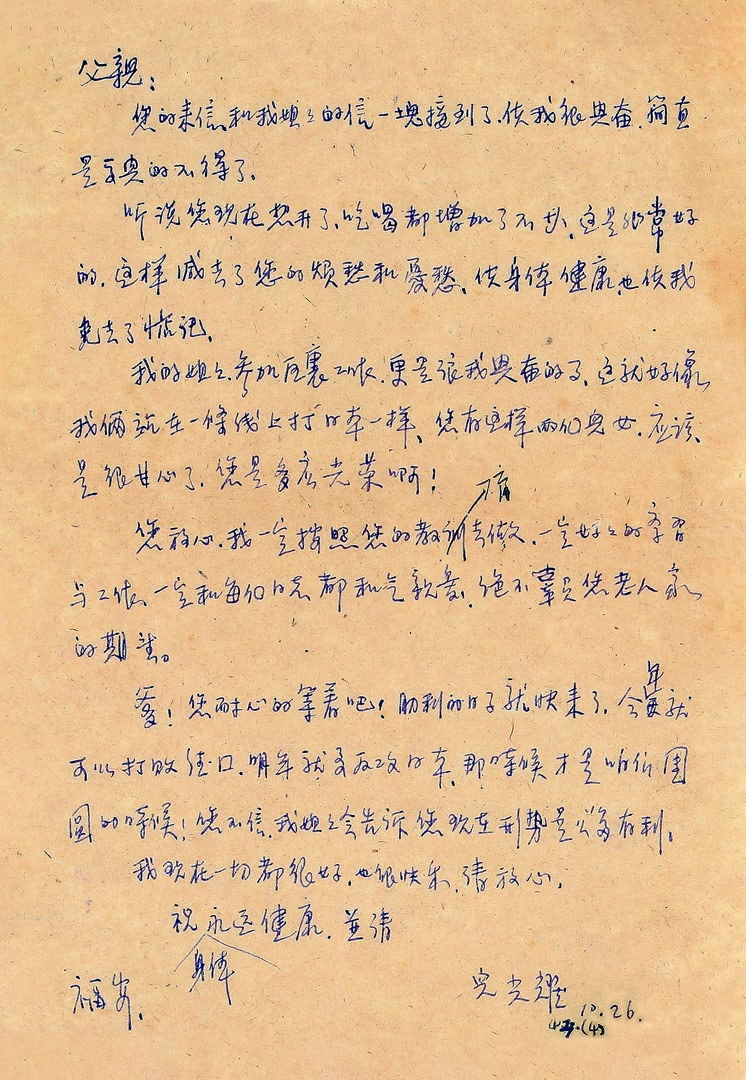 父親：
您的来信和我姐々的信一塊接到了，使我很興奋，簡直
是高興的不得了。
听说您现在想开了，吃喝都增加了不少，这是非常好
的，这样减去了您的烦愁和憂愁，使身体健康，也使我
免去了惦记。
我的姐々参加区裏工作，更是讓我興奋的了，这就好像
我俩站在一條线上打日本一样，您有这样两们兒女，应该
是很甘心了，您是多么光荣啊！
您放心，我一定按照您的教训去做，一定好々的学習
与工作，一定和每们同志都和气親爱，绝不辜負您老人家
的期望。
爹！您耐心的等着吧！勝利的日子就快来了，今年就
可以打败德口，明年就要反攻日本，那時候才是咱们團
圓的時候！您不信，我姐々会告诉您现在形势是多么有利。
我现在一切都很好，也很快乐，请放心。
祝永远健康，並请
身体
福安。
兒光耀
10.26.